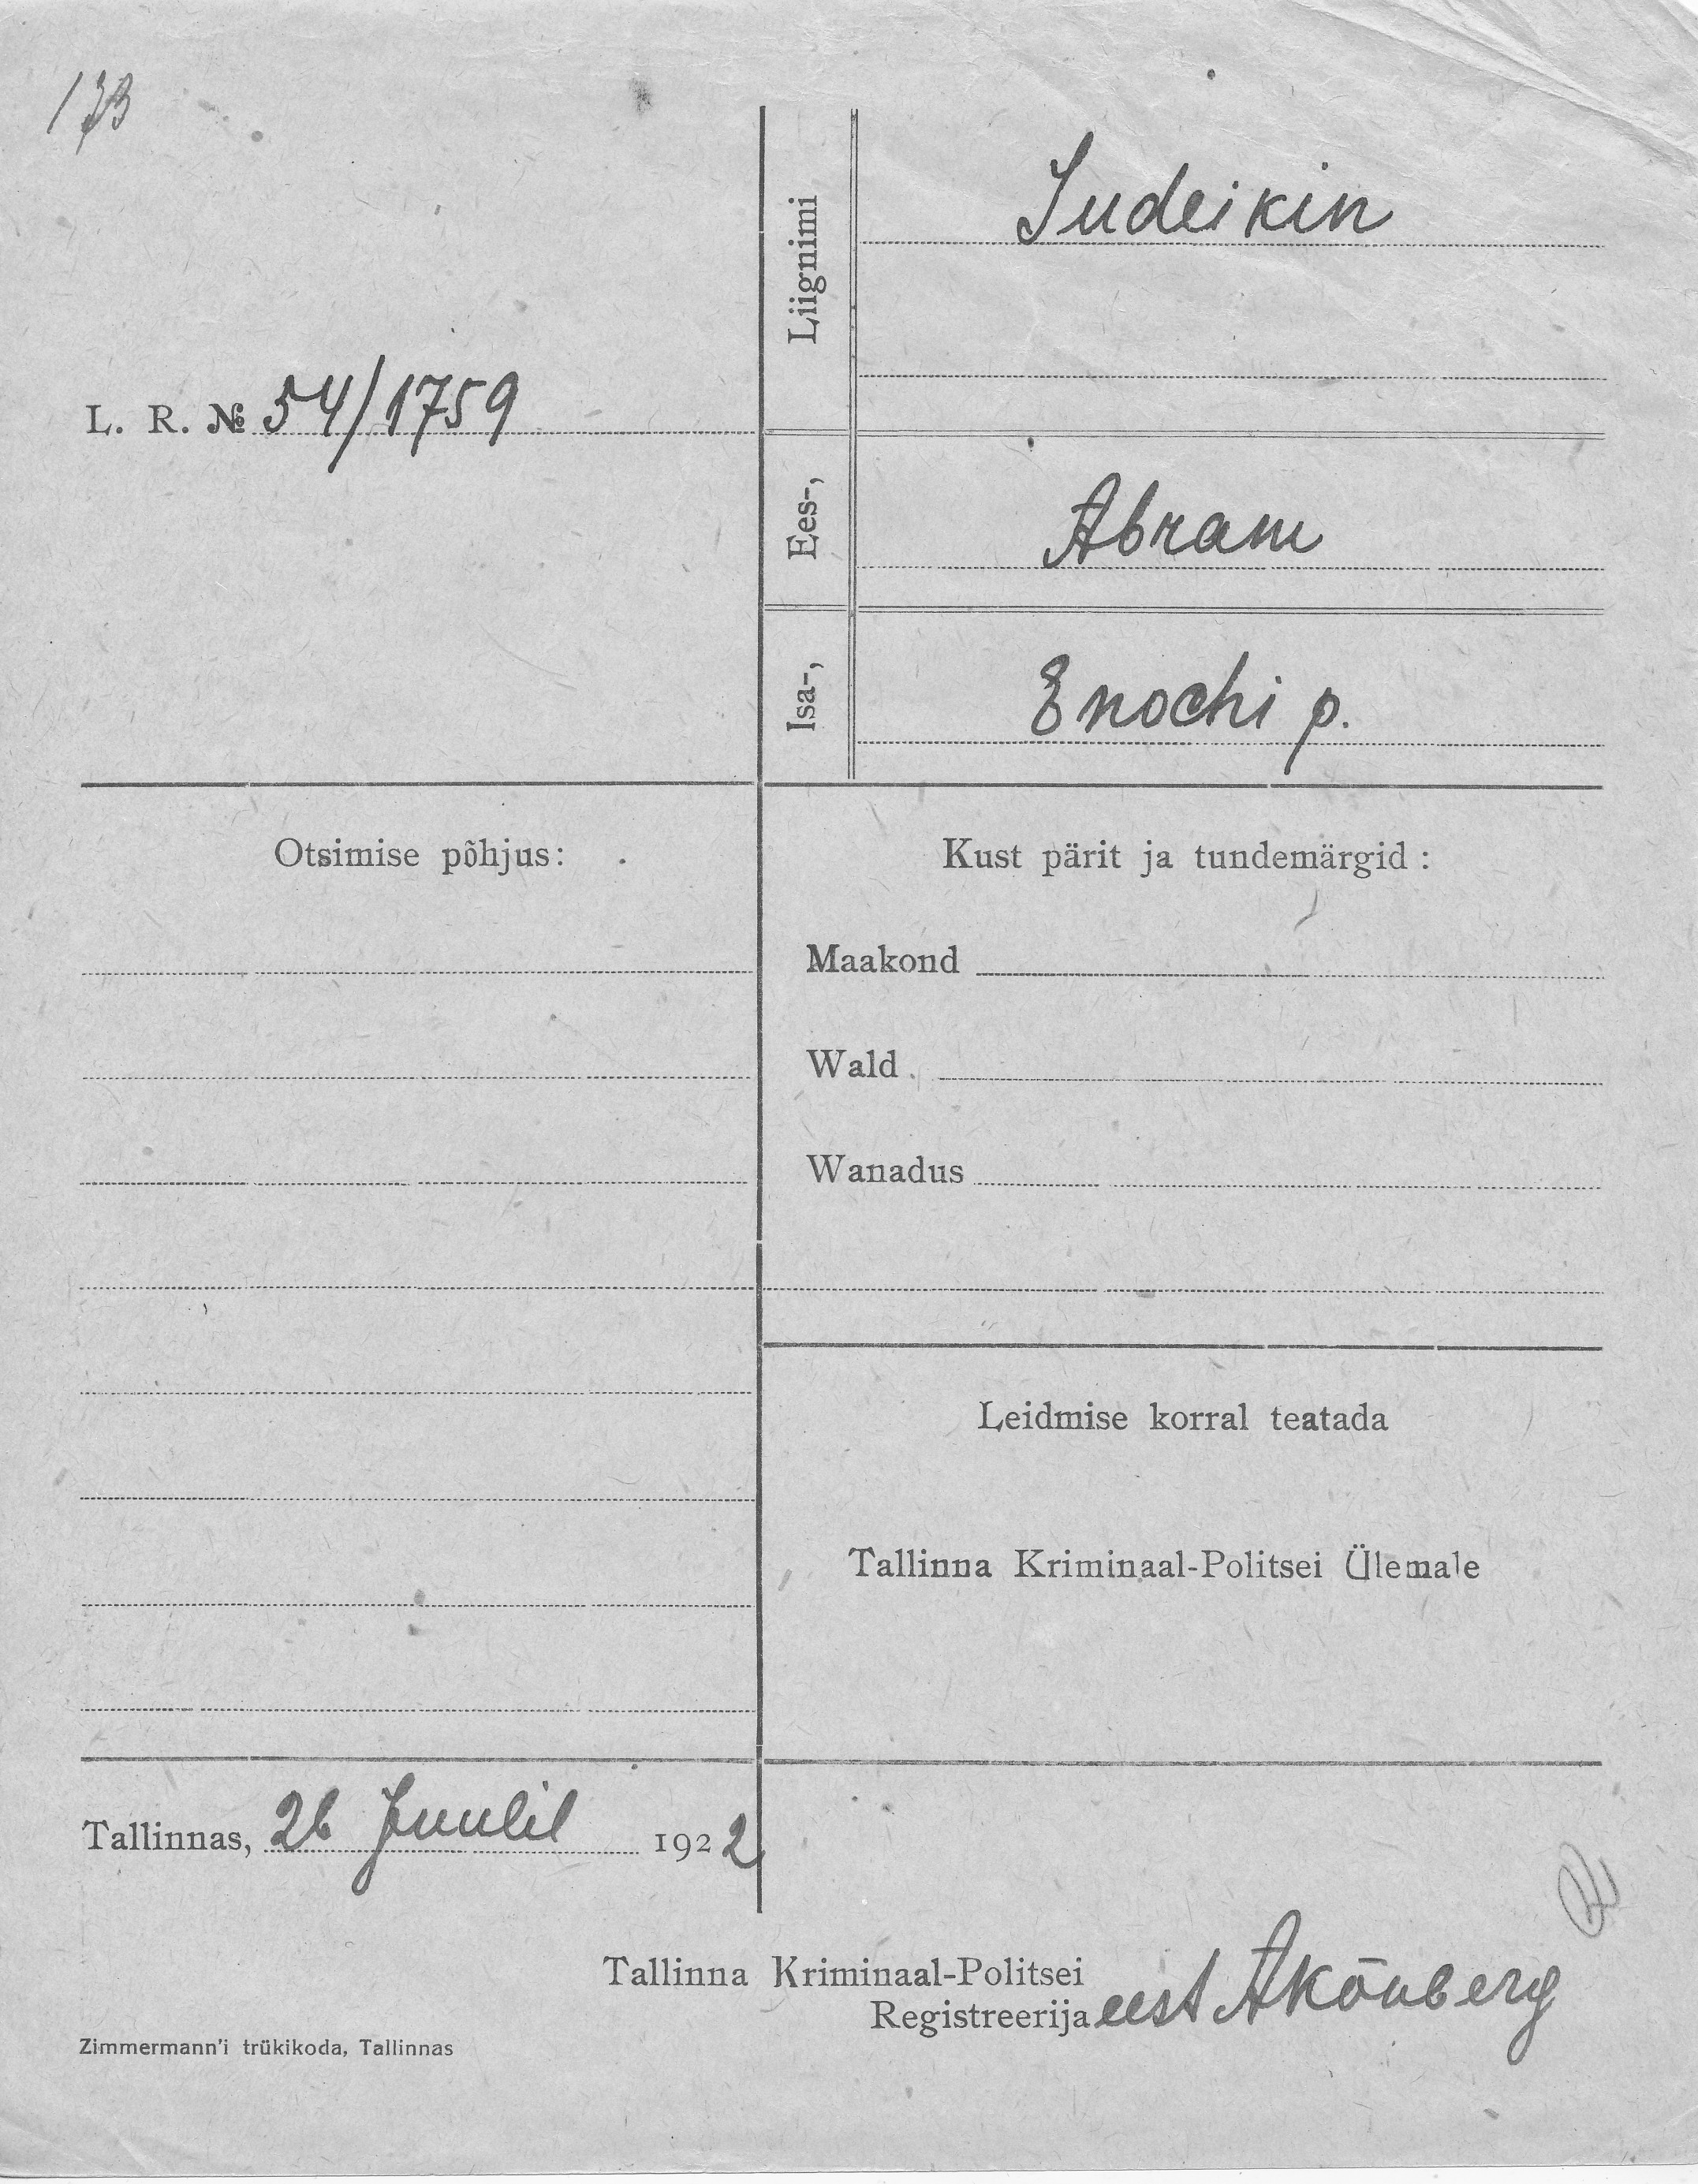 173
L. R. № 54/1759
Liignimi
Sudeikin
Ees-,
Abram
Isa-,
Enochi p.
Otsimise põhjus:
Kust pärit ja tundemärgid:
Maakond
Wald
Wanadus
Leidmise korral teatada
Tallinna Kriminaal-Politsei Ülemale
Tallinnas, 26 Juulil 1922
Tallinna Kriminaal-Politsei
Registreerija eest AKõuberg
Zimmermann'i trükikoda, Tallinnas